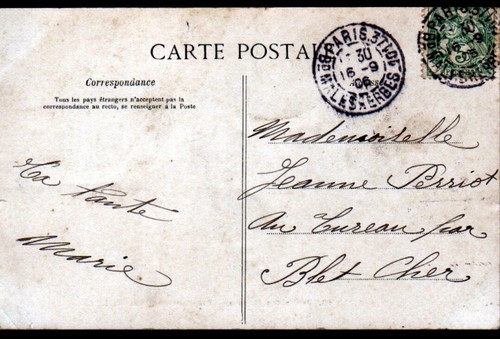 CARTE POSTALE
Correspondance
Tous les pays étrangers n'acceptent pas la
correspondance au recto, se renseigner à la Poste
PARIS.37
30
16 - 9
06
Bd MALESHERBES
Ta tante
Marie
Mademoiselle
Jeanne Perriot
Au Tureau par
Blet Cher